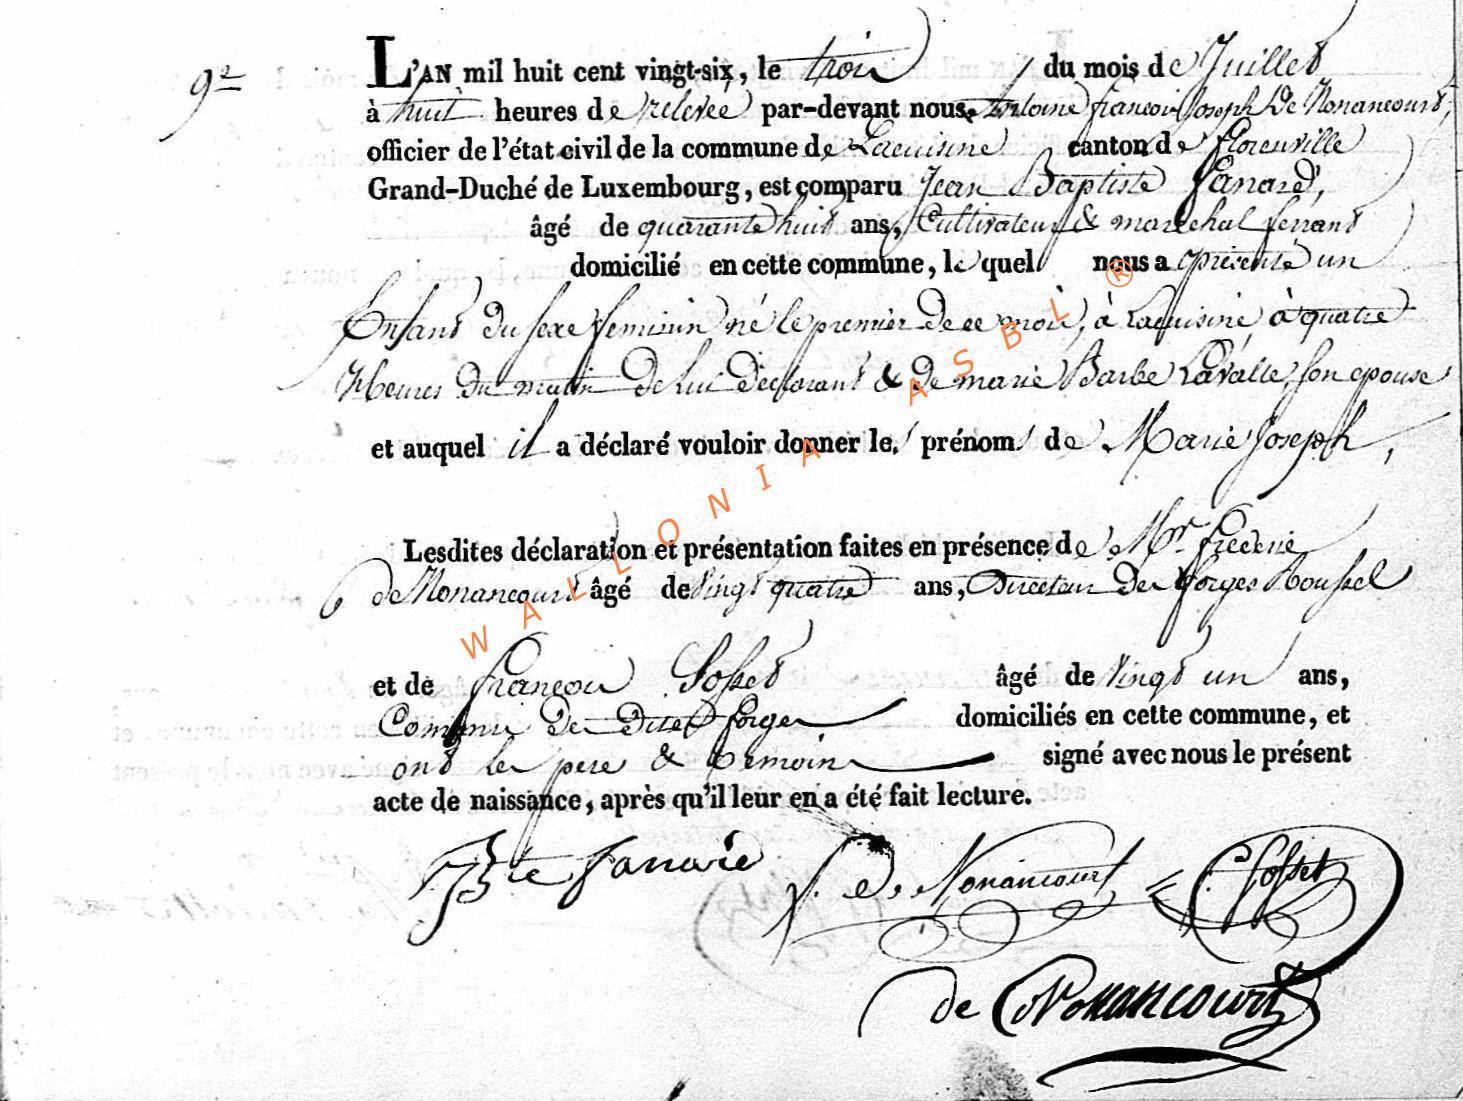 9e
L'AN mil huit cent vingt-six, le trois du mois de Juillet
à huit heures de relevée par-devant nous Antoine françois Joseph De Nonancourt,
officier de l'état civil de la commune de Lacuisine canton de florenville
Grand-Duché de Luxembourg, est comparu Jean Baptiste fanard,
âgé de quarante huit ans, Cultivateur & marechal ferrant
domicilié en cette commune, lequel nous a présenté un
Enfant du sexe feminin né le premier de ce mois, à Lacuisine à quatre
Heures du matin de lui déclarant & de marie Barbe Lavalle, son epouse
et auquel il a déclaré vouloir donner le prénom de Marie Joseph,
Lesdites déclaration et présentation faites en présence de Mr. frederic
de Nonancourt âgé de vingt quatre ans, Directeur des forges Roussel
et de françois Sosset âgé de vingt un ans,
Commis des dites forges domiciliés en cette commune, et
ont les pere & temoins signé avec nous le présent
acte de naissance, après qu'il leur en a été fait lecture.
JBte fanard
f. De Nonancourt
f. Sosset
de Nonancourt
WALLONIA ASBL ®